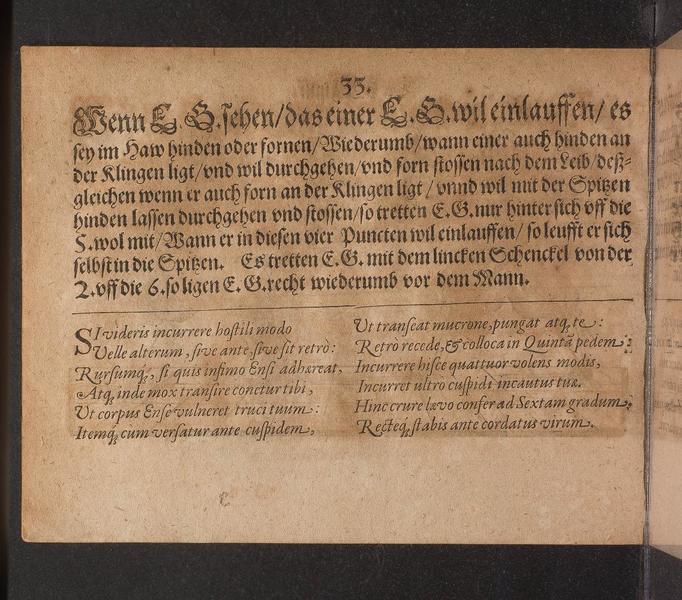 35.
Wenn E. G. sehen/das einer E. G. wil einlauffen/ es
sey im Haw hinden oder fornen/Wiederumb/wann einer auch hinden an
der Klingen ligt/vnd wil durchgehen/vnd forn stossen nach dem Leib/deß-
gleichen wenn er auch forn an der Klingen ligt/vnnd wil mit der Spitzen
hinden lassen durchgehen vnd stossen/so tretten E. G. nur hinter sich vff die
5. wol mit/Wann er in diesen vier Puncten wil einlauffen/so leufft er sich
selbst in die Spitzen. Es tretten E. G. mit dem lincken Schenckel von der
2. vff die 6. so ligen E. G. recht wiederumb vor dem Mann.
SI videris incurrere hostili modo
Velle alterum, sive ante, sive sit retrò:
Rursumq;, si quis infimo Ensi adhæreat,
Atq; inde mox transire conctur tibi,
Ut corpus Ense vulneret truci tuum:
Itemq; cum versatur ante cuspidem,
Ut transeat mucrone, pungat atq; te:
Retrò recede, & colloca in Quintã pedem:
Incurrere hisce quattuor volens modis,
Incurret ultrò cuspidi incautus tuæ.
Hinc crure lævo confer ad Sextam gradum,
Recteq; stabis ante cordatus virum.